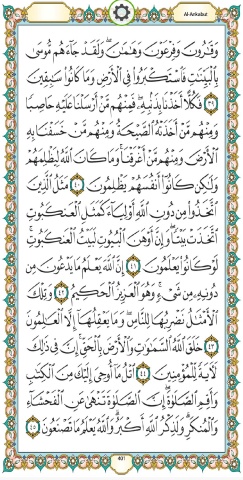 Al-Ankabut
وَقَٰرُونَ وَفِرْعَوْنَ وَهَٰمَٰنَ ۖ وَلَقَدْ جَآءَهُم مُّوسَىٰ
بِٱلْبَيِّنَٰتِ فَٱسْتَكْبَرُوا۟ فِى ٱلْأَرْضِ وَمَا كَانُوا۟ سَٰبِقِينَ
٣٩ فَكُلًّا أَخَذْنَا بِذَنۢبِهِۦ ۖ فَمِنْهُم مَّنْ أَرْسَلْنَا عَلَيْهِ حَاصِبًا
وَمِنْهُم مَّنْ أَخَذَتْهُ ٱلصَّيْحَةُ وَمِنْهُم مَّنْ خَسَفْنَا بِهِ
ٱلْأَرْضَ وَمِنْهُم مَّنْ أَغْرَقْنَا ۚ وَمَا كَانَ ٱللَّهُ لِيَظْلِمَهُمْ
وَلَٰكِن كَانُوٓا۟ أَنفُسَهُمْ يَظْلِمُونَ ٤٠ مَثَلُ ٱلَّذِينَ
ٱتَّخَذُوا۟ مِن دُونِ ٱللَّهِ أَوْلِيَآءَ كَمَثَلِ ٱلْعَنكَبُوتِ
ٱتَّخَذَتْ بَيْتًا ۖ وَإِنَّ أَوْهَنَ ٱلْبُيُوتِ لَبَيْتُ ٱلْعَنكَبُوتِ ۖ
لَوْ كَانُوا۟ يَعْلَمُونَ ٤١ إِنَّ ٱللَّهَ يَعْلَمُ مَا يَدْعُونَ مِن
دُونِهِۦ مِن شَىْءٍ ۚ وَهُوَ ٱلْعَزِيزُ ٱلْحَكِيمُ ٤٢ وَتِلْكَ
ٱلْأَمْثَٰلُ نَضْرِبُهَا لِلنَّاسِ ۖ وَمَا يَعْقِلُهَآ إِلَّا ٱلْعَٰلِمُونَ
٤٣ خَلَقَ ٱللَّهُ ٱلسَّمَٰوَٰتِ وَٱلْأَرْضَ بِٱلْحَقِّ ۚ إِنَّ فِى ذَٰلِكَ
لَءَايَةً لِّلْمُؤْمِنِينَ ٤٤ ٱتْلُ مَآ أُوحِىَ إِلَيْكَ مِنَ ٱلْكِتَٰبِ
وَأَقِمِ ٱلصَّلَوٰةَ ۖ إِنَّ ٱلصَّلَوٰةَ تَنْهَىٰ عَنِ ٱلْفَحْشَآءِ
وَٱلْمُنكَرِ ۗ وَلَذِكْرُ ٱللَّهِ أَكْبَرُ ۗ وَٱللَّهُ يَعْلَمُ مَا تَصْنَعُونَ ٤٥
401